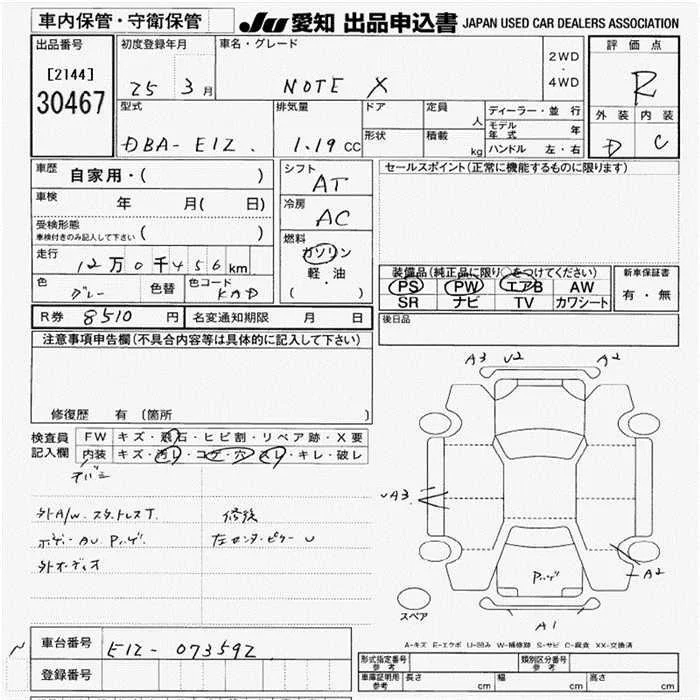 車内保管・守衛保管
JU 愛知 出品申込書 JAPAN USED CAR DEALERS ASSOCIATION
出品番号
[2144]
30467
初度登録年月
25 3 月
車名・グレード
NOTE X
2WD
・
4WD
評価点
R
外装 内装
D C
型式
DBA-E12
排気量
1.19 cc
ドア
形状
定員 人
積載 kg
ディーラー・並行
モデル年式 年
ハンドル 左・右
車歴 自家用・( )
車検 年 月( 日)
受検形態
車検付きのみ記入して下さい ( )
走行 12万0千456 km
色 グレー 色替 色コード KAD
シフト AT
冷房 AC
燃料
ガソリン
・
軽油
( )
セールスポイント(正常に機能するものに限ります)
装備品(純正品に限り○をつけてください)
PS PW エアB AW
SR ナビ TV カワシート
新車保証書
有・無
R券 8510 円 名変通知期限 月 日
後日品
注意事項申告欄(不具合内容等は具体的に記入して下さい)
修復歴 有 (箇所 )
検査員記入欄
FW キズ・飛石・ヒビ割・リペア跡・X要
内装 キズ・汚レ・コゲ・穴・スレ・キレ・破レ
外A/W.スタットレスT.
外オーディオ
修後
左センターピラーU
A3 U2 A2
UA3
A2
A1
スペア
A-キズ E-エクボ U-凹み W-補修跡 S-サビ C-腐食 XX-交換済
車台番号 E12-073592
登録番号
形式指定番号 参考
類別区分番号 参考
車庫証明用 参考 長さ cm 幅 cm 高さ cm